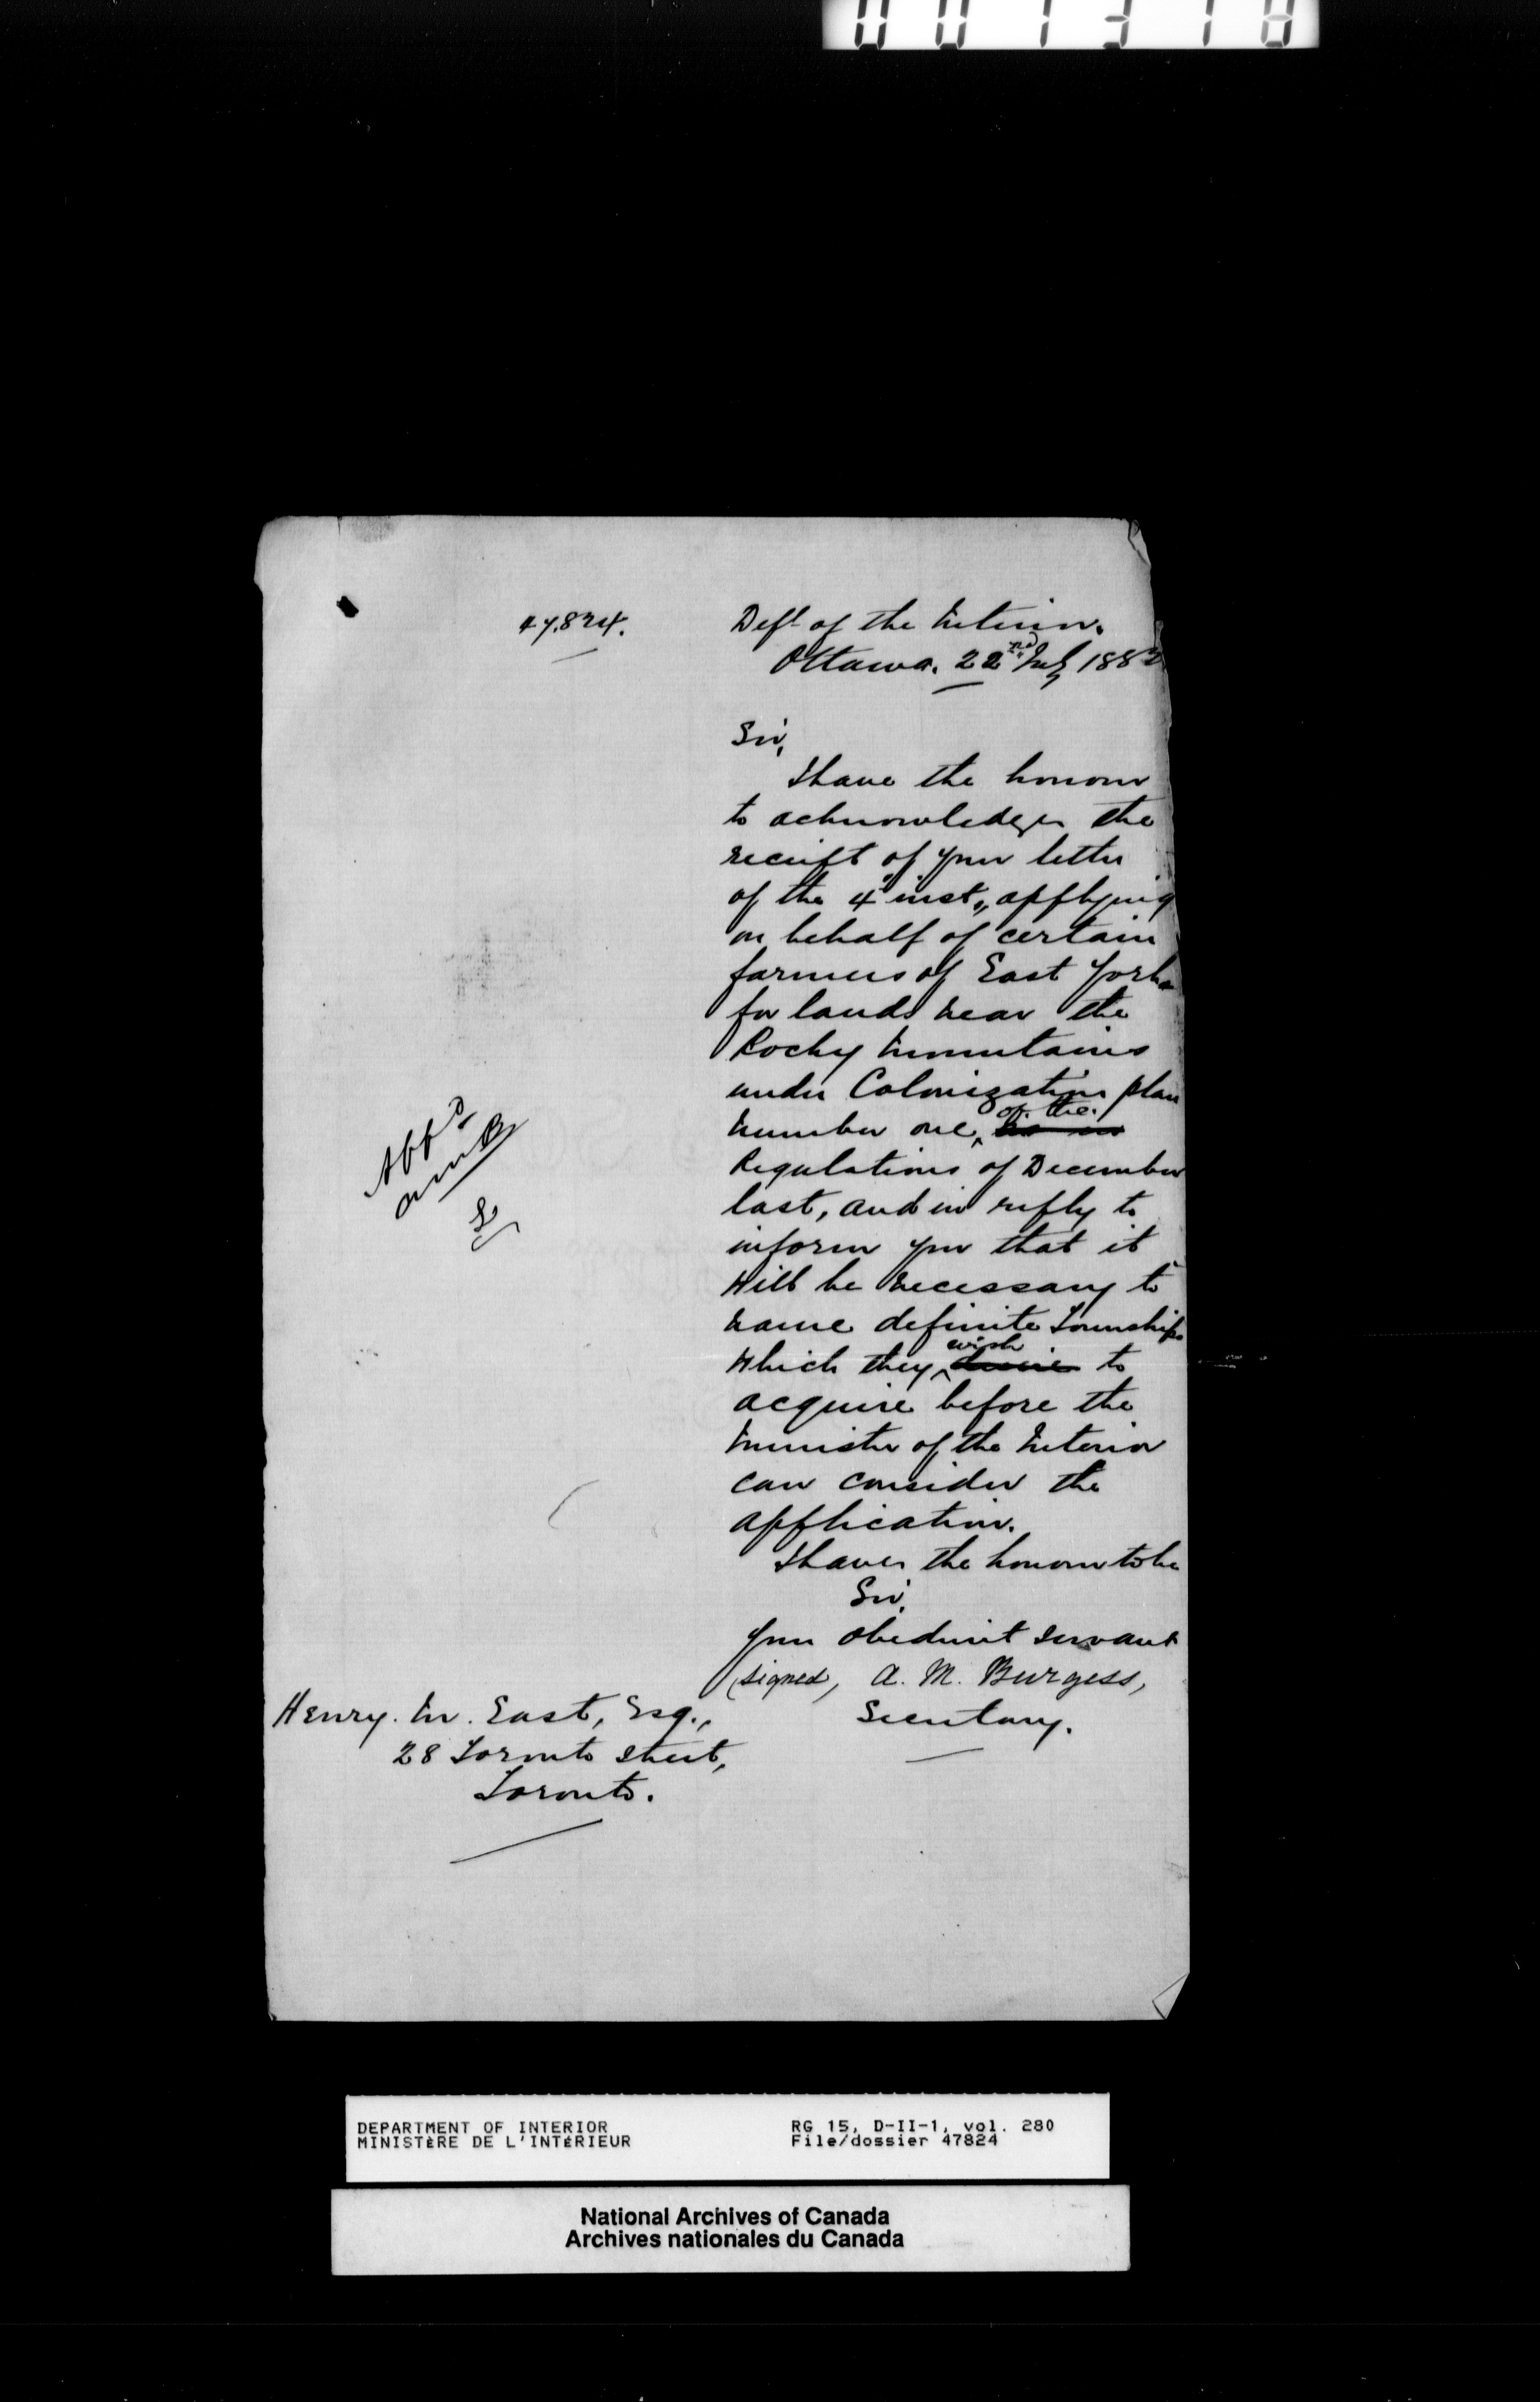 001318
47,824.
Dept. of the Interior.
Ottawa. 22nd July 1882
Sir,
I have the honour
to acknowledge the
receipt of your letter
of the 4" inst., applying
on behalf of certain
farmers of East York
for lands near the
Rocky Mountains
under Colonization plan
of the
number one,
Regulations of December
last, and in reply to
inform you that it
will be necessary to
name definite Townships
wish
which they desire to
acquire before the
Minister of the Interior
can consider the
application.
I have the honour to be
Sir,
Your obedient servant
(signed, A. M. Burgess,
Secretary.
App'd
AMB
Henry. M. East, Esq.,
28 Toronto Street,
Toronto.
DEPARTMENT OF INTERIOR
MINISTÈRE DE L'INTÉRIEUR
RG 15, D-II-1, vol. 280
File/dossier 47824
National Archives of Canada
Archives nationales du Canada